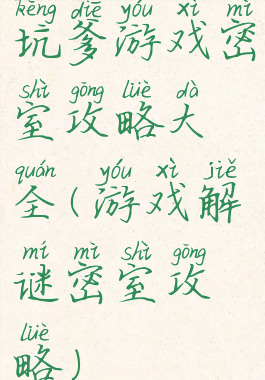 kēng diē yóu xì mì
坑爹游戏密
shì gōng lüè dà
室攻略大
quán yóu xì jiě
全(游戏解
mí mì shì gōng
谜密室攻
lüè
略)